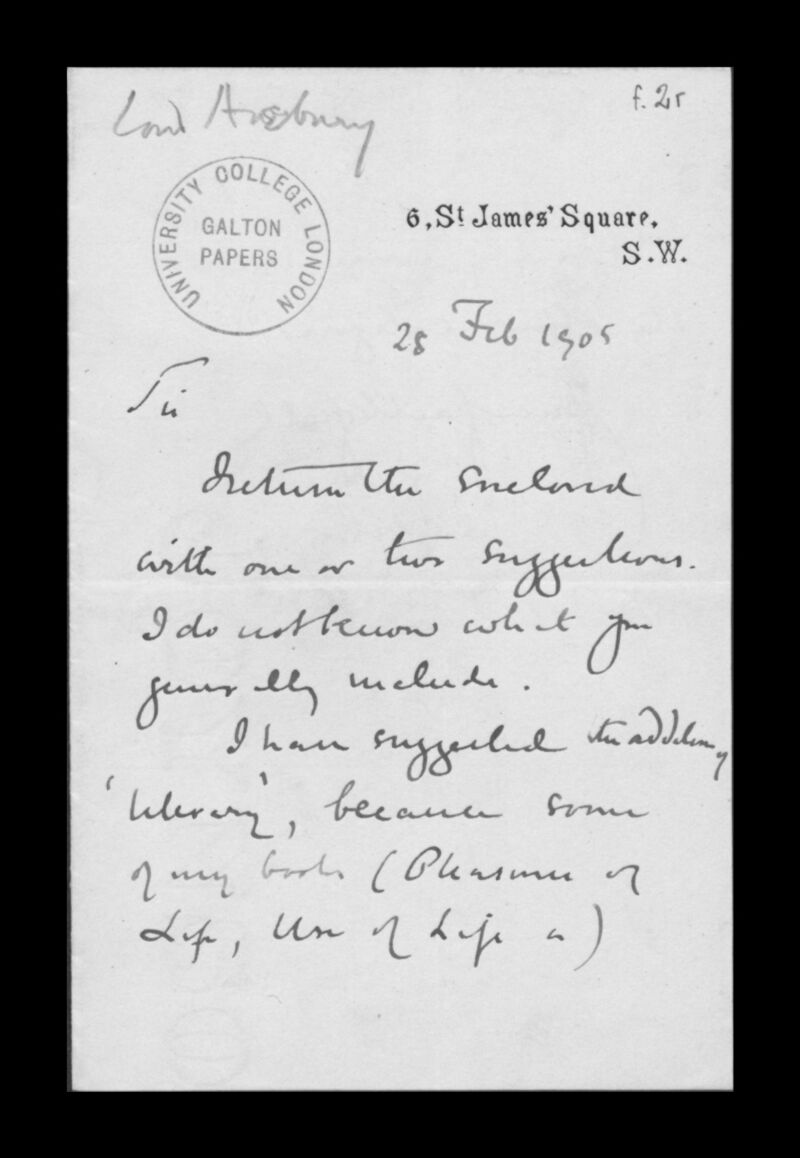 Lord Avebury
f. 2r
UNIVERSITY COLLEGE LONDON
GALTON
PAPERS
6, St James' Square,
S.W.
28 Feb 1905
Sir
I return the enclosed
with one or two suggestions.
I do not know what you
generally include.
I have suggested the addition of
'literary', because some
of my books (Pleasures of
Life, Use of Life